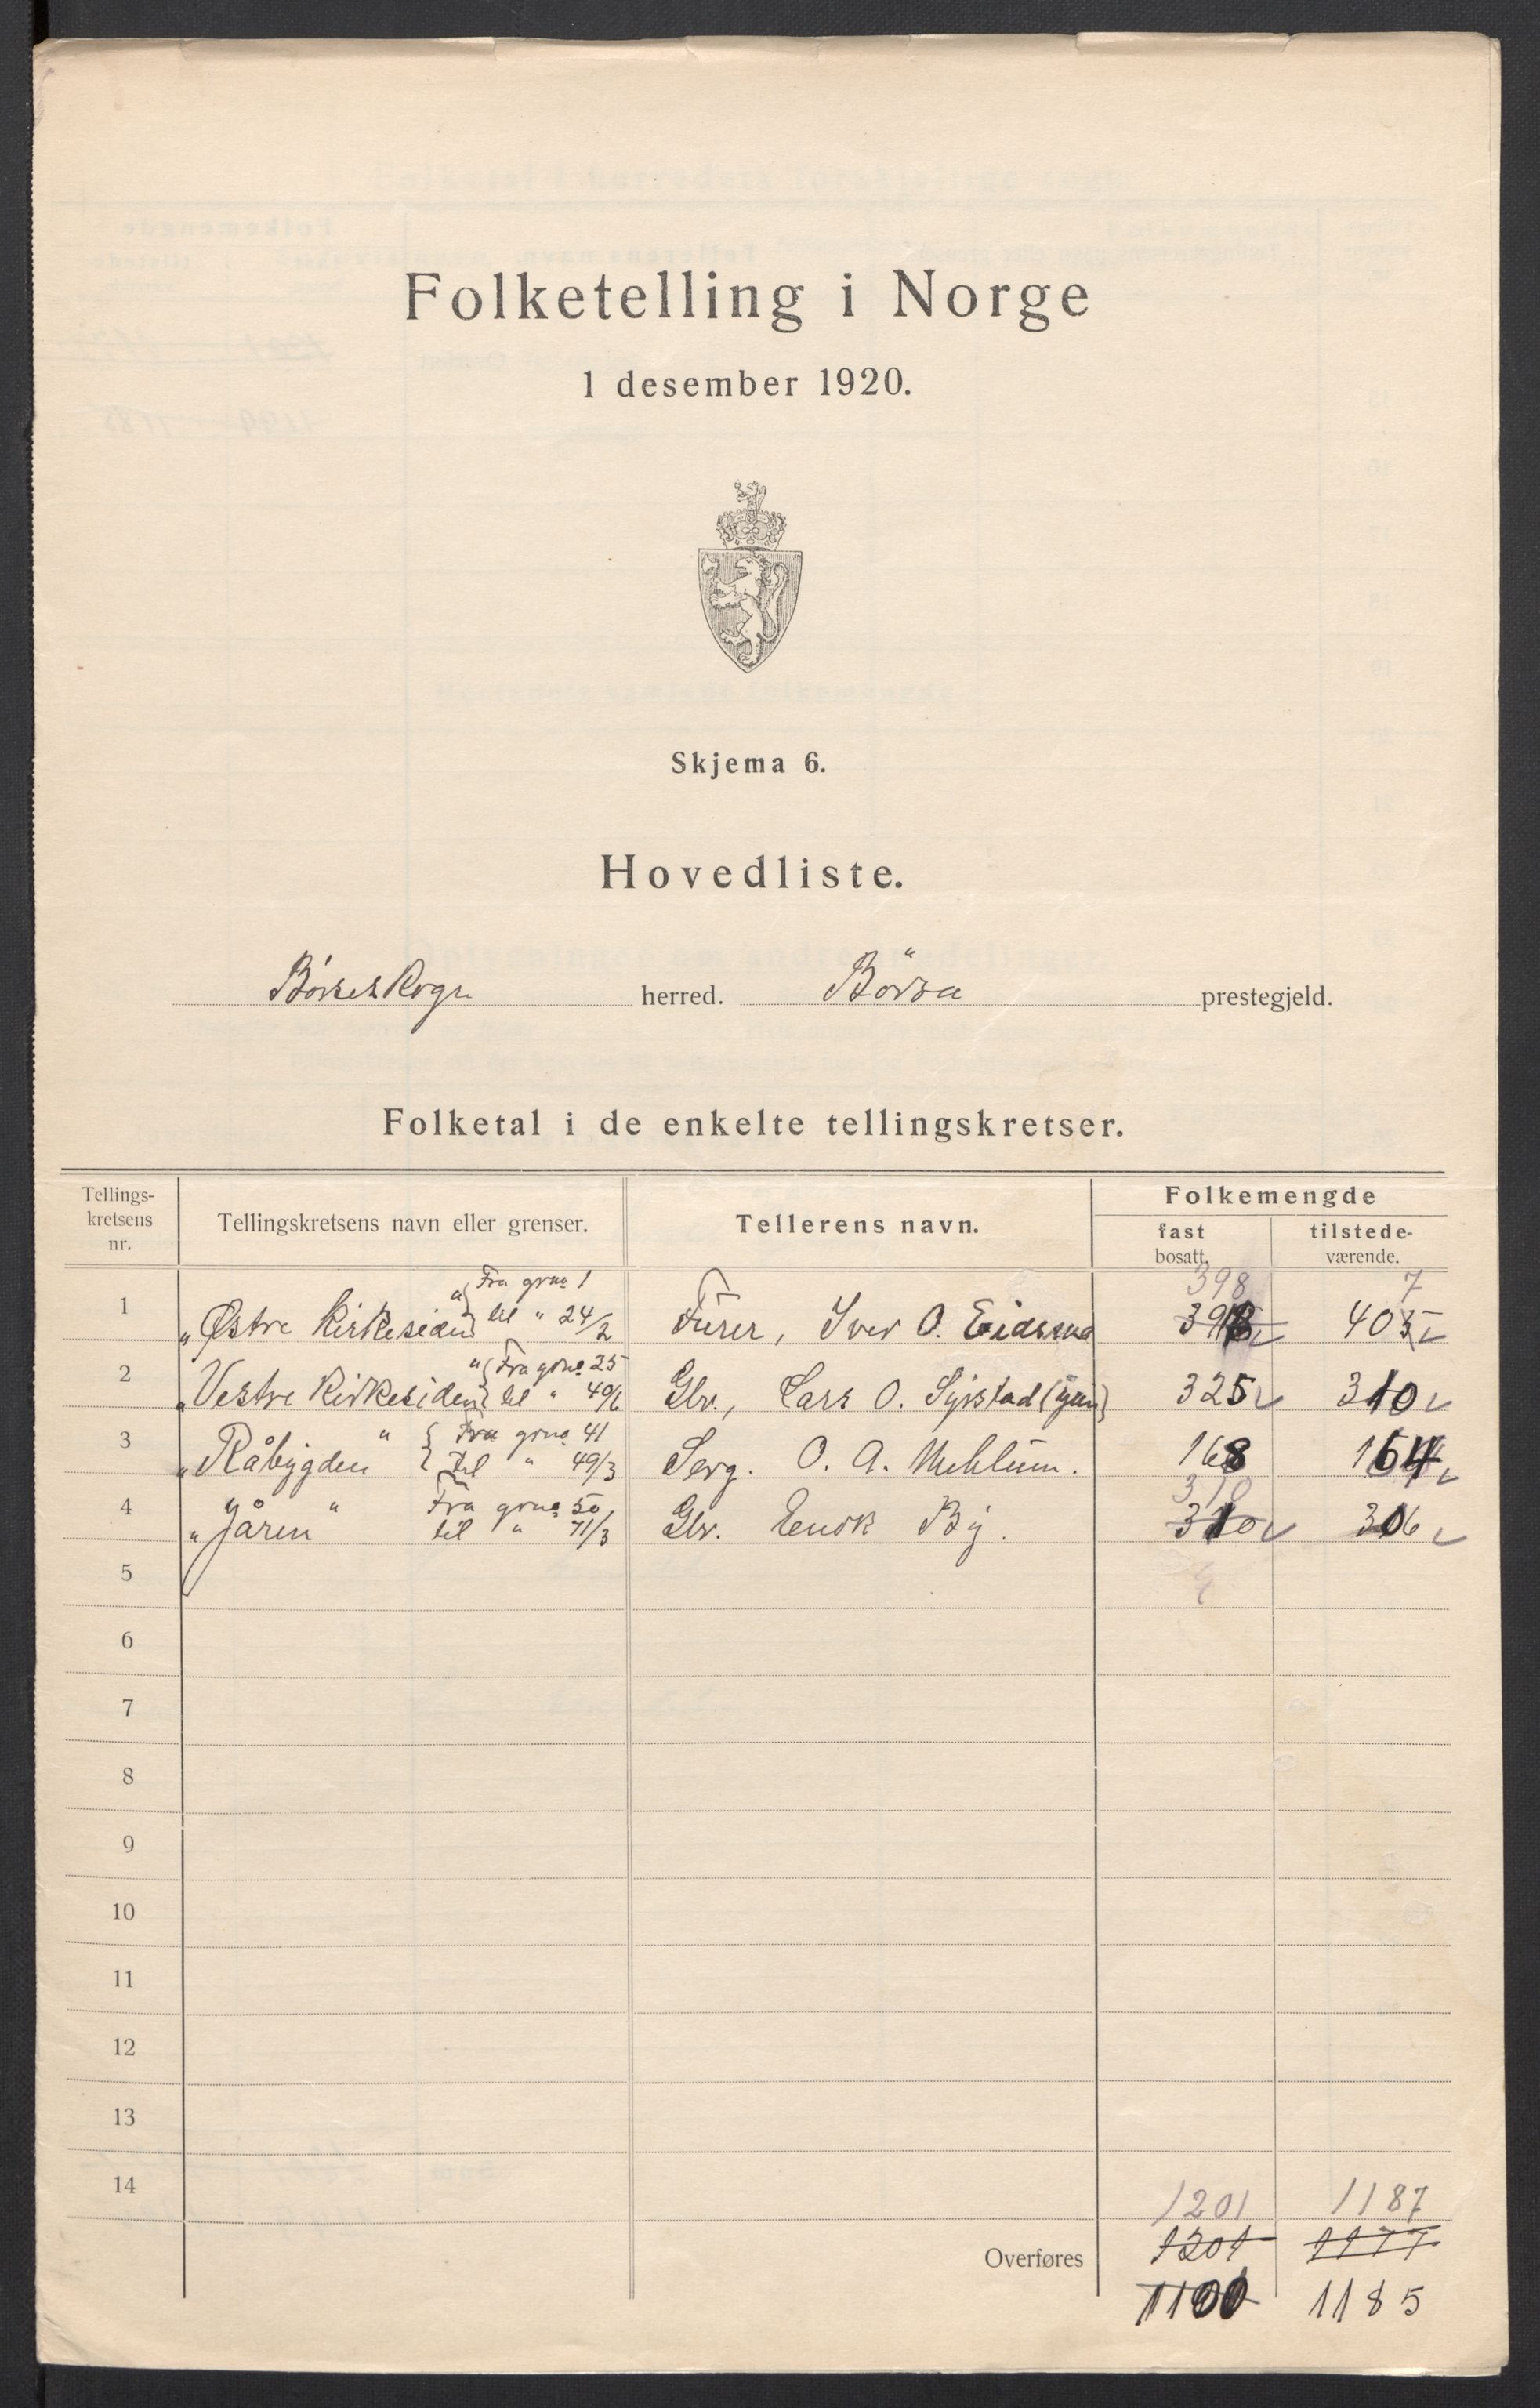 Folketelling i Norge
1 desember 1920.
Skjema 6.
Hovedliste.
Børseskogn herred. Börsa prestegjeld.
Folketal i de enkelte tellingskretser.
Tellings-kretsens nr. Tellingskretsens navn eller grenser. Tellerens navn. Folkemengde
fast bosatt. tilstede-værende.
Fra grno 1 398 7
1 „Østre Kirkesiden" til " 24/2 Furer, Iver O. 405
Fra grno 25
2 „Vestre Kirkesiden" til " 40/6 Gbr., Lars O. Syrstad 325 310
Fra grno 41
3 „Råbygden" til " 49/3 Serg. O. A. Mehlum. 168 164
Fra grno 50 310
4 „Jåren" til " 71/3 Gbr. Enok By. 310 306
5
6
7
8
9
10
11
12
13
14
1201 1187
Overføres 1201 1177
1185